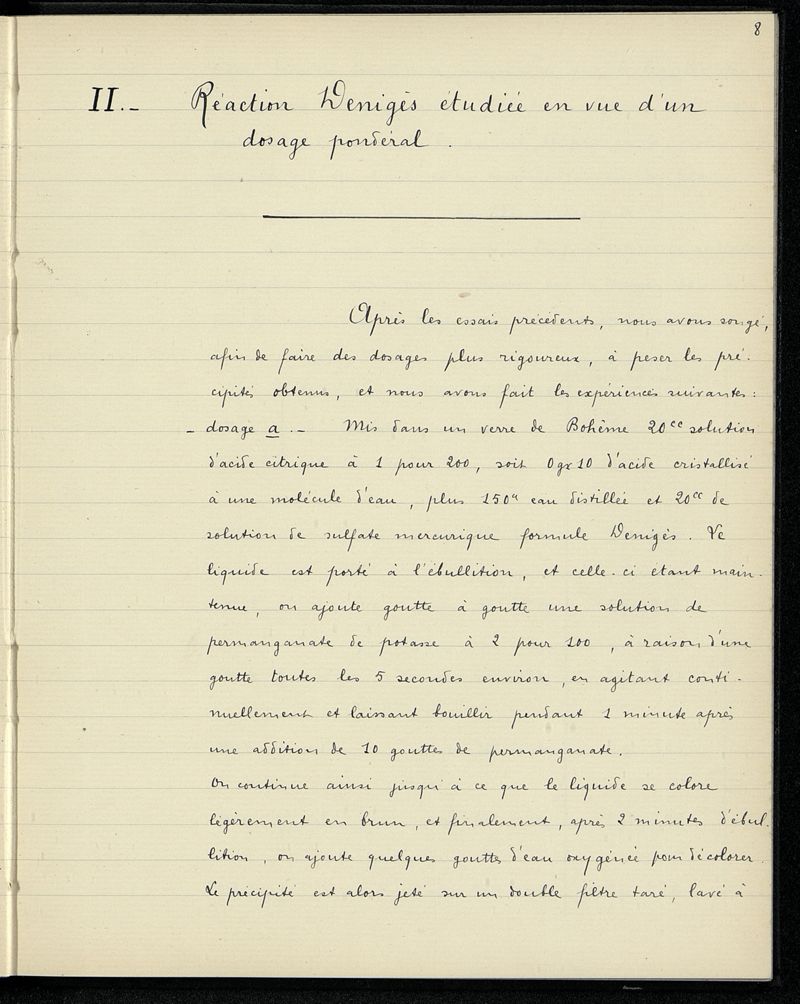 8
II._ Réaction Denigès étudiée en vue d'un
dosage pondéral.
Après les essais précédents, nous avons songé,
afin de faire des dosages plus rigoureux, à peser les pré-
cipités obtenus, et nous avons fait les expériences suivantes:
_ dosage a._ Mis dans un verre de Bohême 20cc solution
d'acide citrique à 1 pour 200, soit 0gr10 d'acide cristallisé
à une molécule d'eau, plus 150cc eau distillée et 20cc de
solution de sulfate mercurique formule Denigès. Le
liquide est porté à l'ébullition, et celle-ci etant main-
tenue, on ajoute goutte à goutte une solution de
permanganate de potasse à 2 pour 100, à raison d'une
goutte toutes les 5 secondes environ, en agitant conti-
nuellement et laissant bouillir pendant 1 minute après
une addition de 10 gouttes de permanganate.
On continue ainsi jusqu'à ce que le liquide se colore
légèrement en brun, et finalement, après 2 minutes d'ébul-
lition, on ajoute quelques gouttes d'eau oxygénée pour décolorer.
Le précipité est alors jeté sur un double filtre taré, lavé à